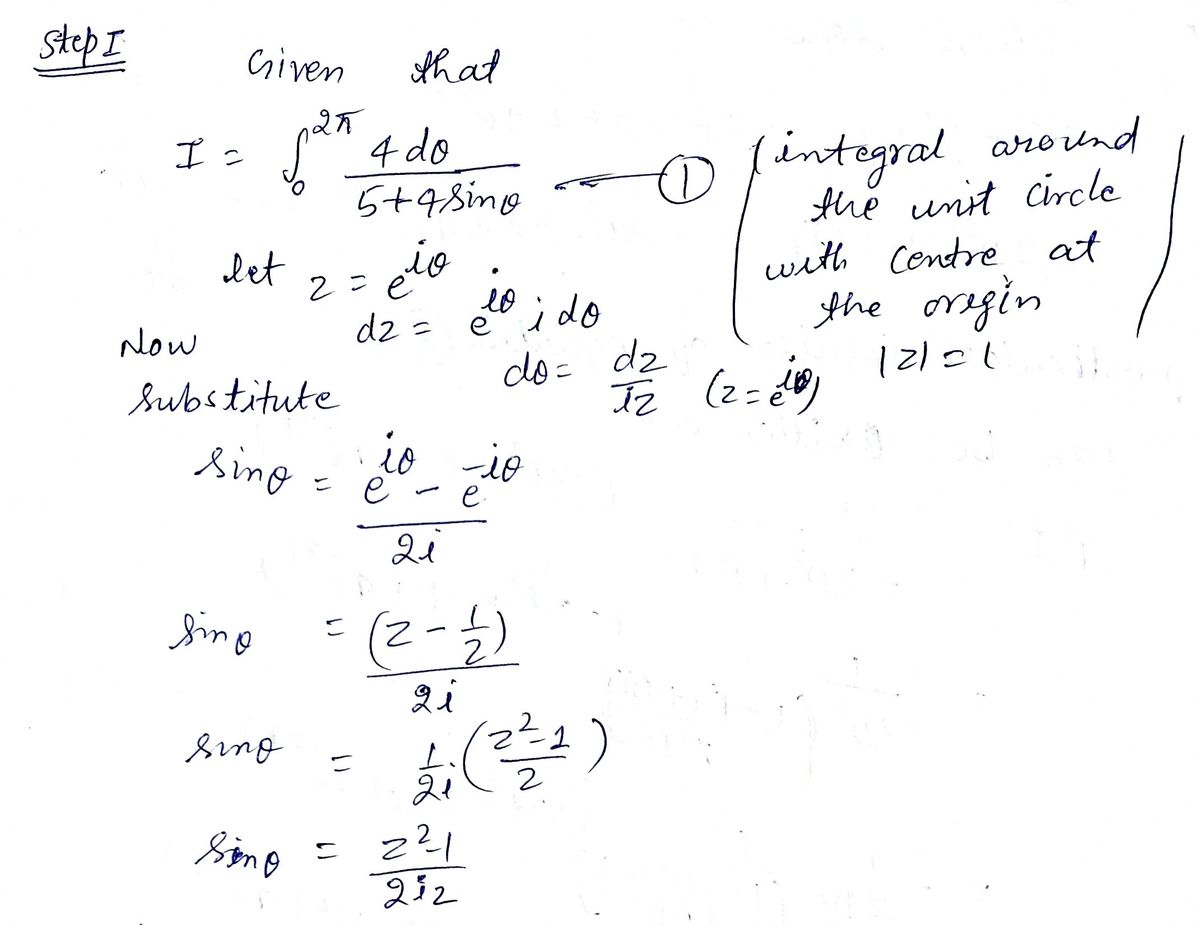 Step I
Given that
I = ∫₀^2π 4dθ / (5+4sinθ) —— ① (integral around the unit circle with centre at the origin) |z| = 1
let z = e^iθ
dz = e^iθ i dθ
Now
dθ = dz/iz (z = e^iθ)
substitute
sinθ = (e^iθ - e^-iθ) / 2i
sinθ = (z - 1/z) / 2i
sinθ = 1/2i (z²-1 / z)
sinθ = z²-1 / 2iz